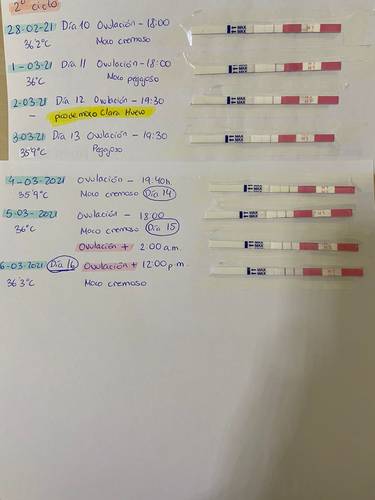 2º ciclo
28-02-21 Día 10 Ovulación - 18:00
36'2ºC Moco cremoso
1-03-21 Día 11 Ovulación - 18:00
36ºC Moco pegajoso
2-03-21 Día 12 Ovulación - 19:30
- pico de moco Clara Huevo
3-03-21 Día 13 Ovulación - 19:30
35'9ºC Pegajoso
4-03-2021 Ovulación - 19:40h.
35'9ºC Moco cremoso Día 14
5-03-2021 Ovulación - 18:00
36ºC Moco cremoso Día 15
Ovulación + 2:00 a.m.
6-03-2021 Día 16 Ovulación + 12:00 p.m.
36'3ºC Moco cremoso
MAX
MAX
MAX
MAX
MAX
MAX
MAX
MAX